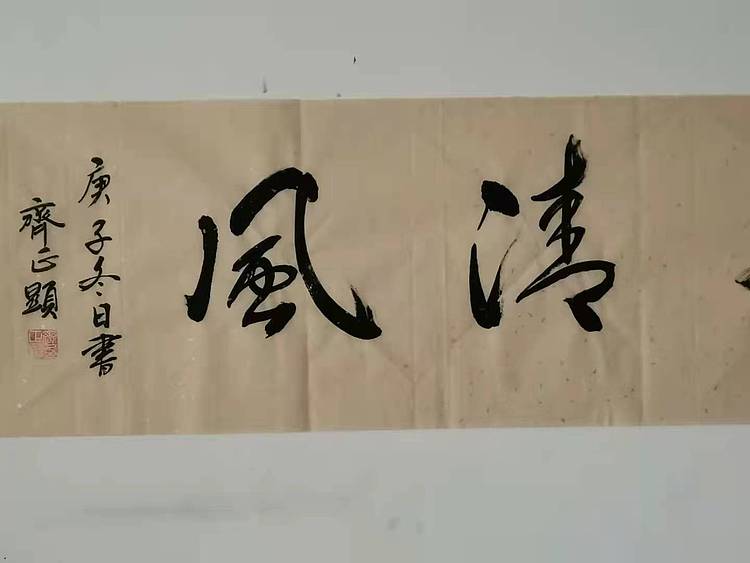 清風
庚子冬日書
齊正顯